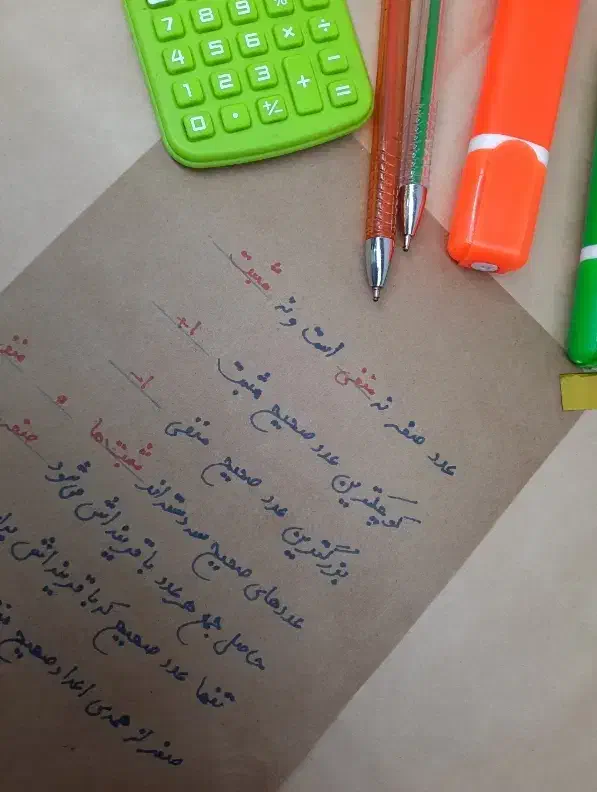 7 8 9 %
4 5 6 × ÷
1 2 3 + −
0 · +/− =
عدد صفر نه منفی است و نه مثبت
کوچکترین عدد صحیح مثبت +۱
بزرگترین عدد صحیح منفی -۱
عددهای صحیح سه دسته‌اند مثبت‌ها و منفی
حاصل جمع هر عدد با قرینه‌اش می‌شود صفر
تنها عدد صحیح که با قرینه‌اش
صفر از همه‌ی اعداد صحیح